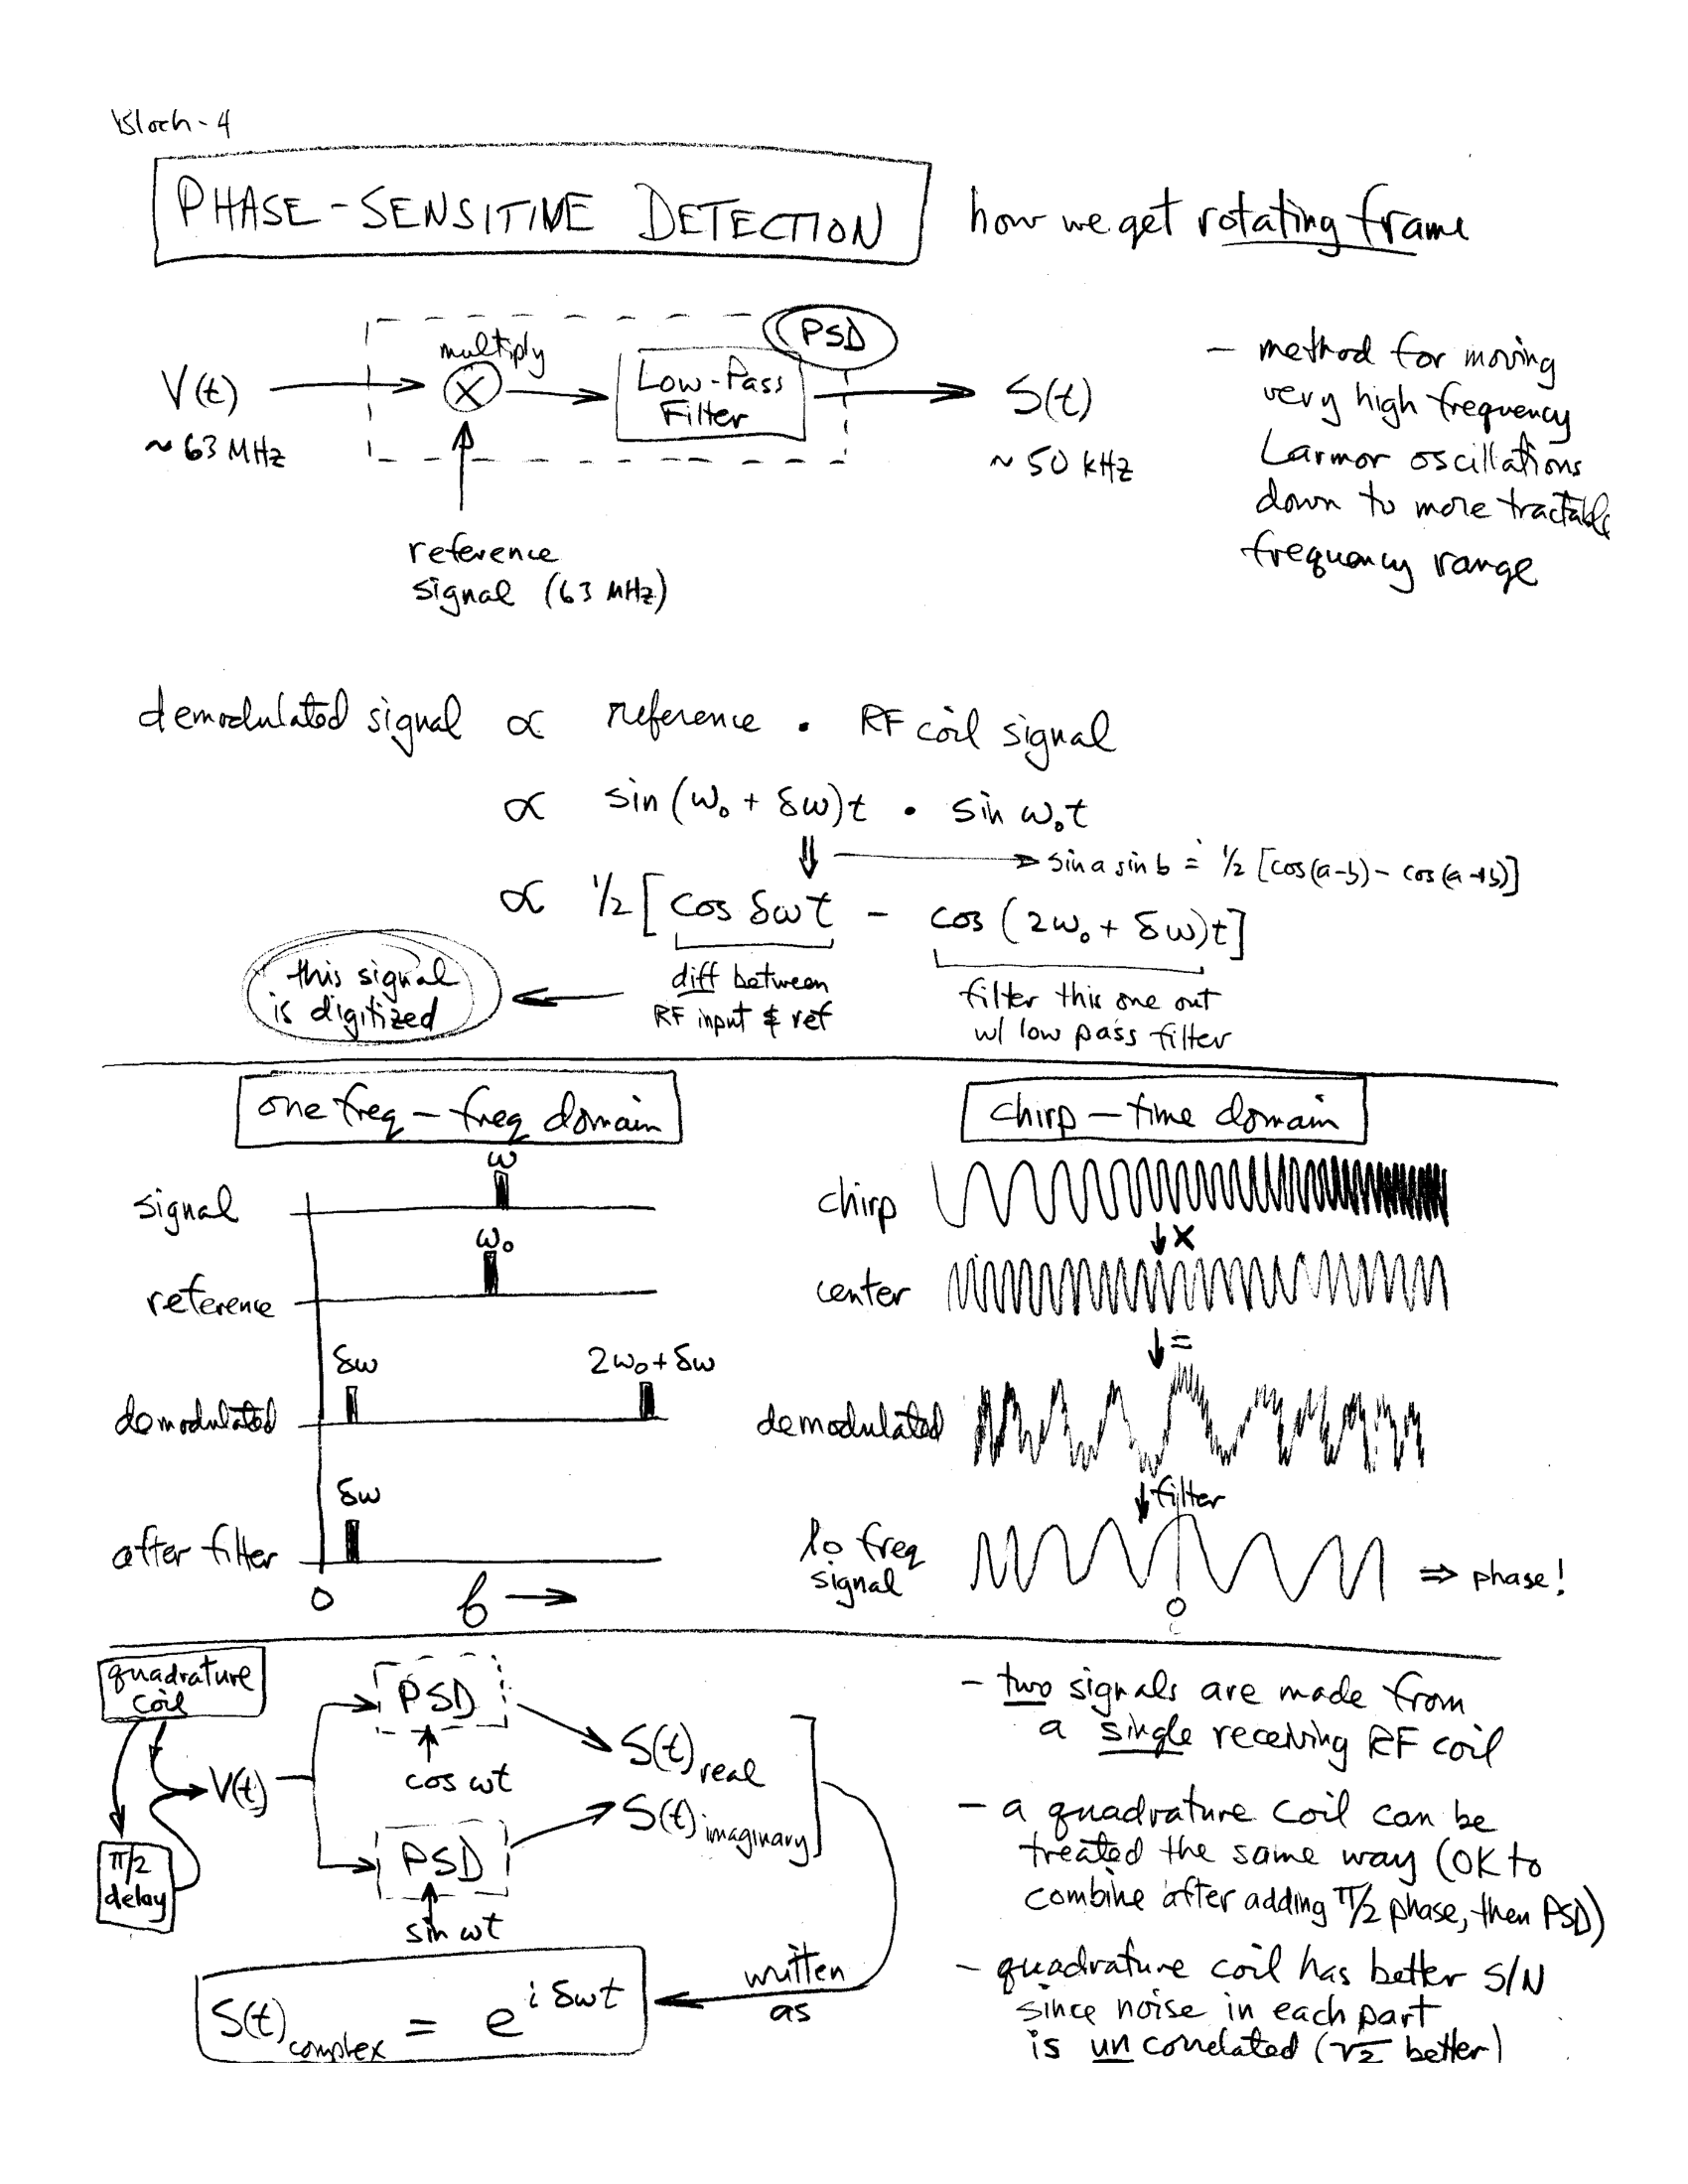 Bloch-4
PHASE-SENSITIVE DETECTION
how we get rotating frame
V(t)
~63 MHz
multiply
X
Low-Pass
Filter
PSD
S(t)
~50 kHz
reference
signal (63 MHz)
- method for moving
very high frequency
Larmor oscillations
down to more tractable
frequency range
demodulated signal ∝ reference · RF coil signal
∝ sin(ω₀ + δω)t · sin ω₀t
⇓ → sin a sin b = ½ [cos(a-b) - cos(a+b)]
∝ ½ [cos δωt - cos (2ω₀ + δω)t]
this signal
is digitized
←
diff between
RF input & ref
filter this one out
w/ low pass filter
one freq - freq domain
signal
ω
reference
ω₀
demodulated
δω
2ω₀ + δω
after filter
δω
0
f →
chirp - time domain
chirp
↓ x
center
↓ =
demodulated
↓ filter
lo freq
signal
0
⇒ phase!
quadrature
coil
π/2
delay
V(t)
PSD
cos ωt
PSD
sin ωt
S(t) real
S(t) imaginary
written
as
S(t) complex = e^{iδωt}
- two signals are made from
a single receiving RF coil
- a quadrature coil can be
treated the same way (OK to
combine after adding π/2 phase, then PSD)
- quadrature coil has better S/N
since noise in each part
is uncorrelated (√2 better)